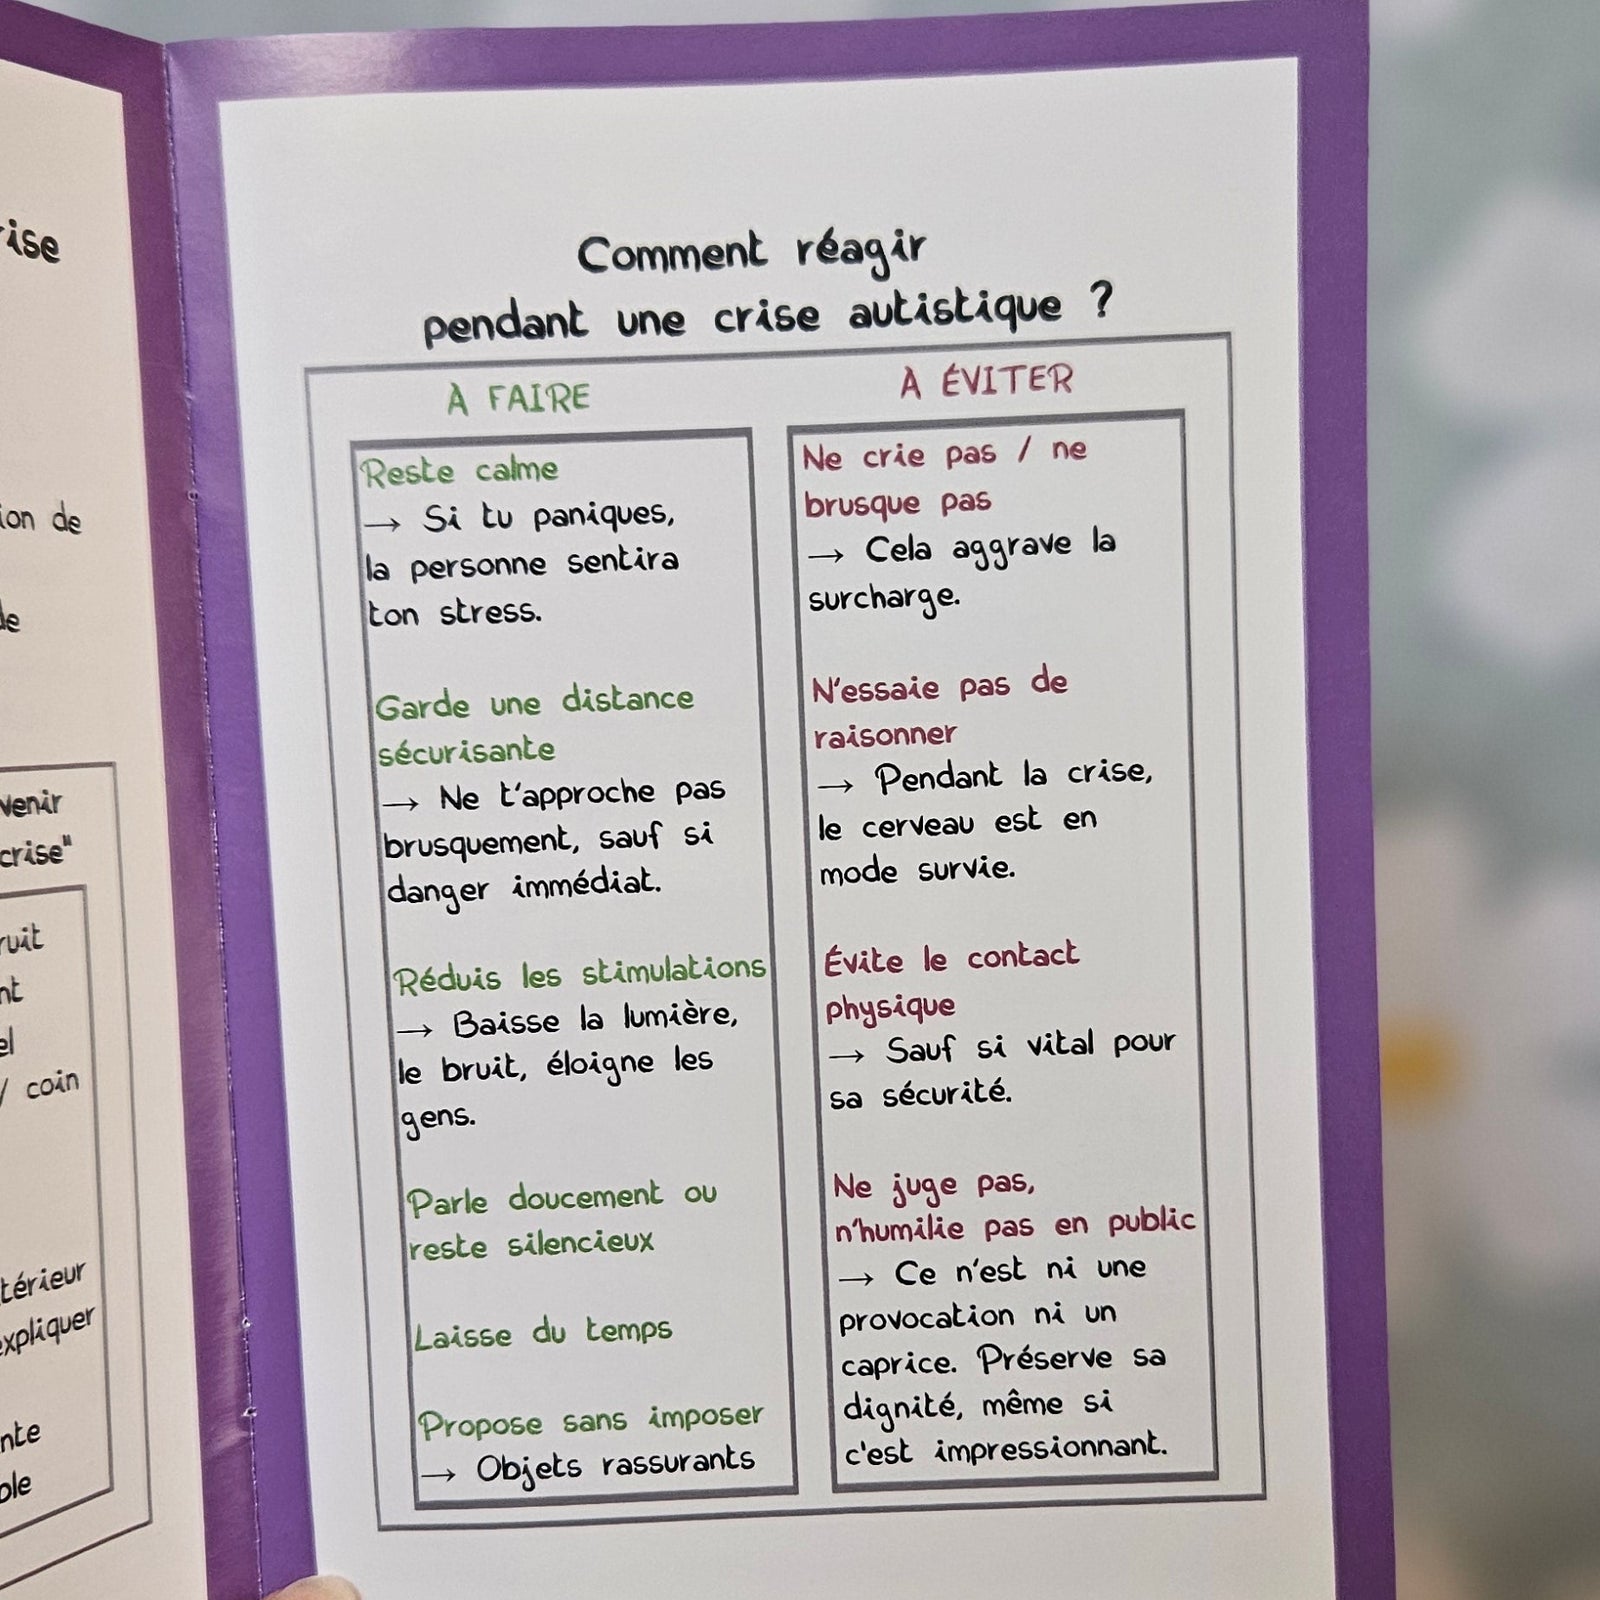 ise
ion de
de
venir
crise"
ruit
nt
el
/ coin
térieur
expliquer
nte
ble
Comment réagir
pendant une crise autistique ?
À FAIRE
Reste calme
→ Si tu paniques,
la personne sentira
ton stress.
Garde une distance
sécurisante
→ Ne t'approche pas
brusquement, sauf si
danger immédiat.
Réduis les stimulations
→ Baisse la lumière,
le bruit, éloigne les
gens.
Parle doucement ou
reste silencieux
Laisse du temps
Propose sans imposer
→ Objets rassurants
À ÉVITER
Ne crie pas / ne
brusque pas
→ Cela aggrave la
surcharge.
N'essaie pas de
raisonner
→ Pendant la crise,
le cerveau est en
mode survie.
Évite le contact
physique
→ Sauf si vital pour
sa sécurité.
Ne juge pas,
n'humilie pas en public
→ Ce n'est ni une
provocation ni un
caprice. Préserve sa
dignité, même si
c'est impressionnant.